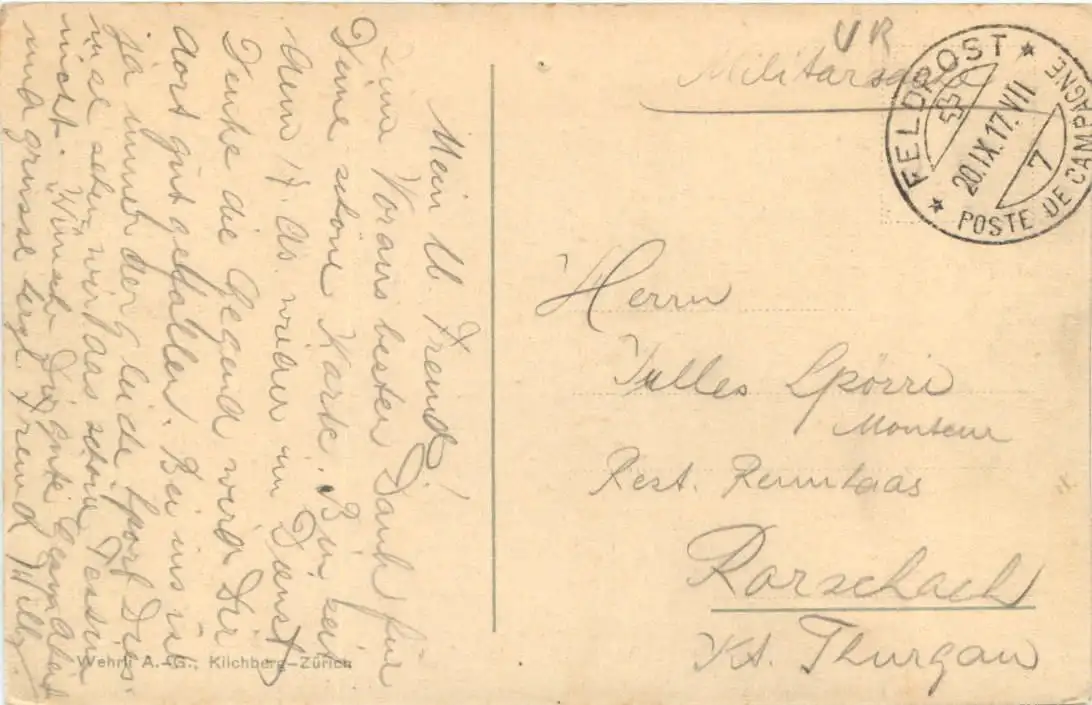 Mein lb. Freund!
Zum Voraus besten Dank für
Deine schöne Karte. Bin seit
dem 17. ds. wieder im Dienst
Denke die Gegend wird Dir
dort gut gefallen. Bei uns ist
ja immer der gleiche Sport. Dies-
mal sehen wir das schöne Tessin
nicht. Wünsch Dir gute Gesundheit
und grüsse Freund Willy
Wehrli A.-G., Kilchberg-Zürich
VR
Militärsache
FELDPOST
20.IX.17.VII
7
POSTE DE CAMPAGNE
Herrn
Spörri
Monteur
Rest.
Rorschach
Kt. Thurgau